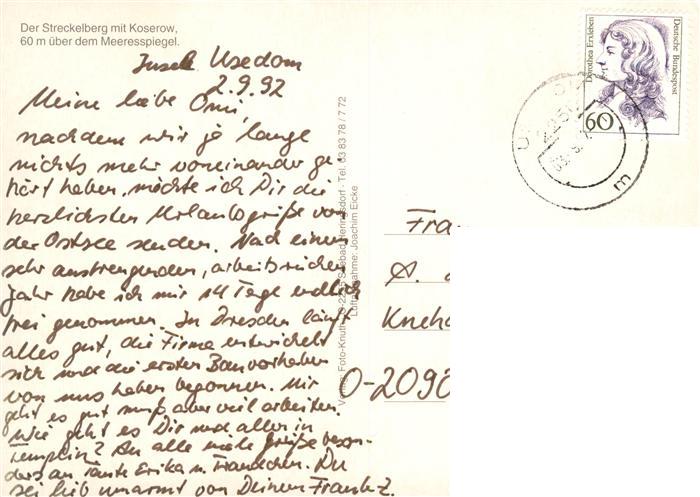 Der Streckelberg mit Koserow,
60 m über dem Meeresspiegel.
Insel Usedom
2.9.92
Meine liebe Omi,
nachdem wir ja lange
nichts mehr voneinander ge-
hört haben, möchte ich Dir die
herzlichsten Urlaubsgrüße von
der Ostsee senden. Nach einem
sehr anstrengenden, arbeitsreichen
Jahr habe ich mir 14 Tage endlich
frei genommen. In Dresden läuft
alles gut, die Firma entwickelt
sich und die ersten Bauvorhaben
von uns haben begonnen. Mir
geht es gut muß aber viel arbeiten.
Wie geht es Dir und allen in
Templin? An alle viele Grüße beson-
ders an Tante Erika u. Frauchen. Du
sei lieb umarmt von Deinem Frank Z.
Foto-Knuth
Seebad Heringsdorf · Tel. 03 83 78 / 7 72
Luftaufnahme: Joachim Eicke
Dorothea Erxleben
Deutsche Bundespost
60
m
Fra
A.
Kneha
O-2090